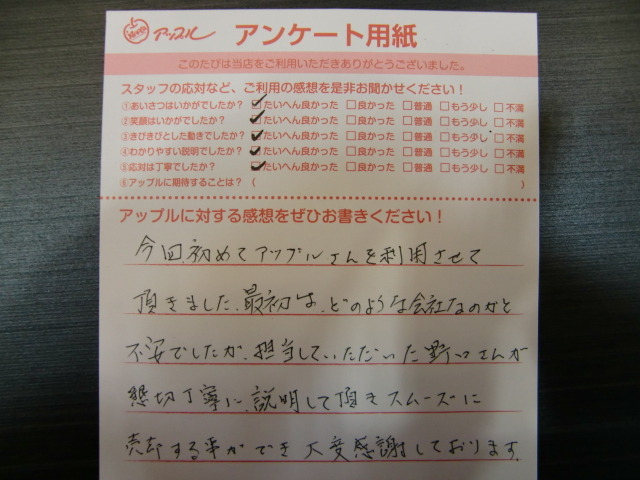 アップル アンケート用紙
このたびは当店をご利用いただきありがとうございました。
スタッフの応対など、ご利用の感想を是非お聞かせください！
①あいさつはいかがでしたか？ ☑たいへん良かった □良かった □普通 □もう少し □不満
②笑顔はいかがでしたか？ ☑たいへん良かった □良かった □普通 □もう少し □不満
③きびきびとした動きでしたか？ ☑たいへん良かった □良かった □普通 □もう少し □不満
④わかりやすい説明でしたか？ ☑たいへん良かった □良かった □普通 □もう少し □不満
⑤応対は丁寧でしたか？ ☑たいへん良かった □良かった □普通 □もう少し □不満
⑥アップルに期待することは？（ ）
アップルに対する感想をぜひお書きください！
今回、初めてアップルさんを利用させて
頂きました、最初は、どのような会社なのかと
不安でしたが、担当していただいた野口さんが
懇切丁寧に、説明して頂きスムーズに
売却する事ができ大変感謝しております。